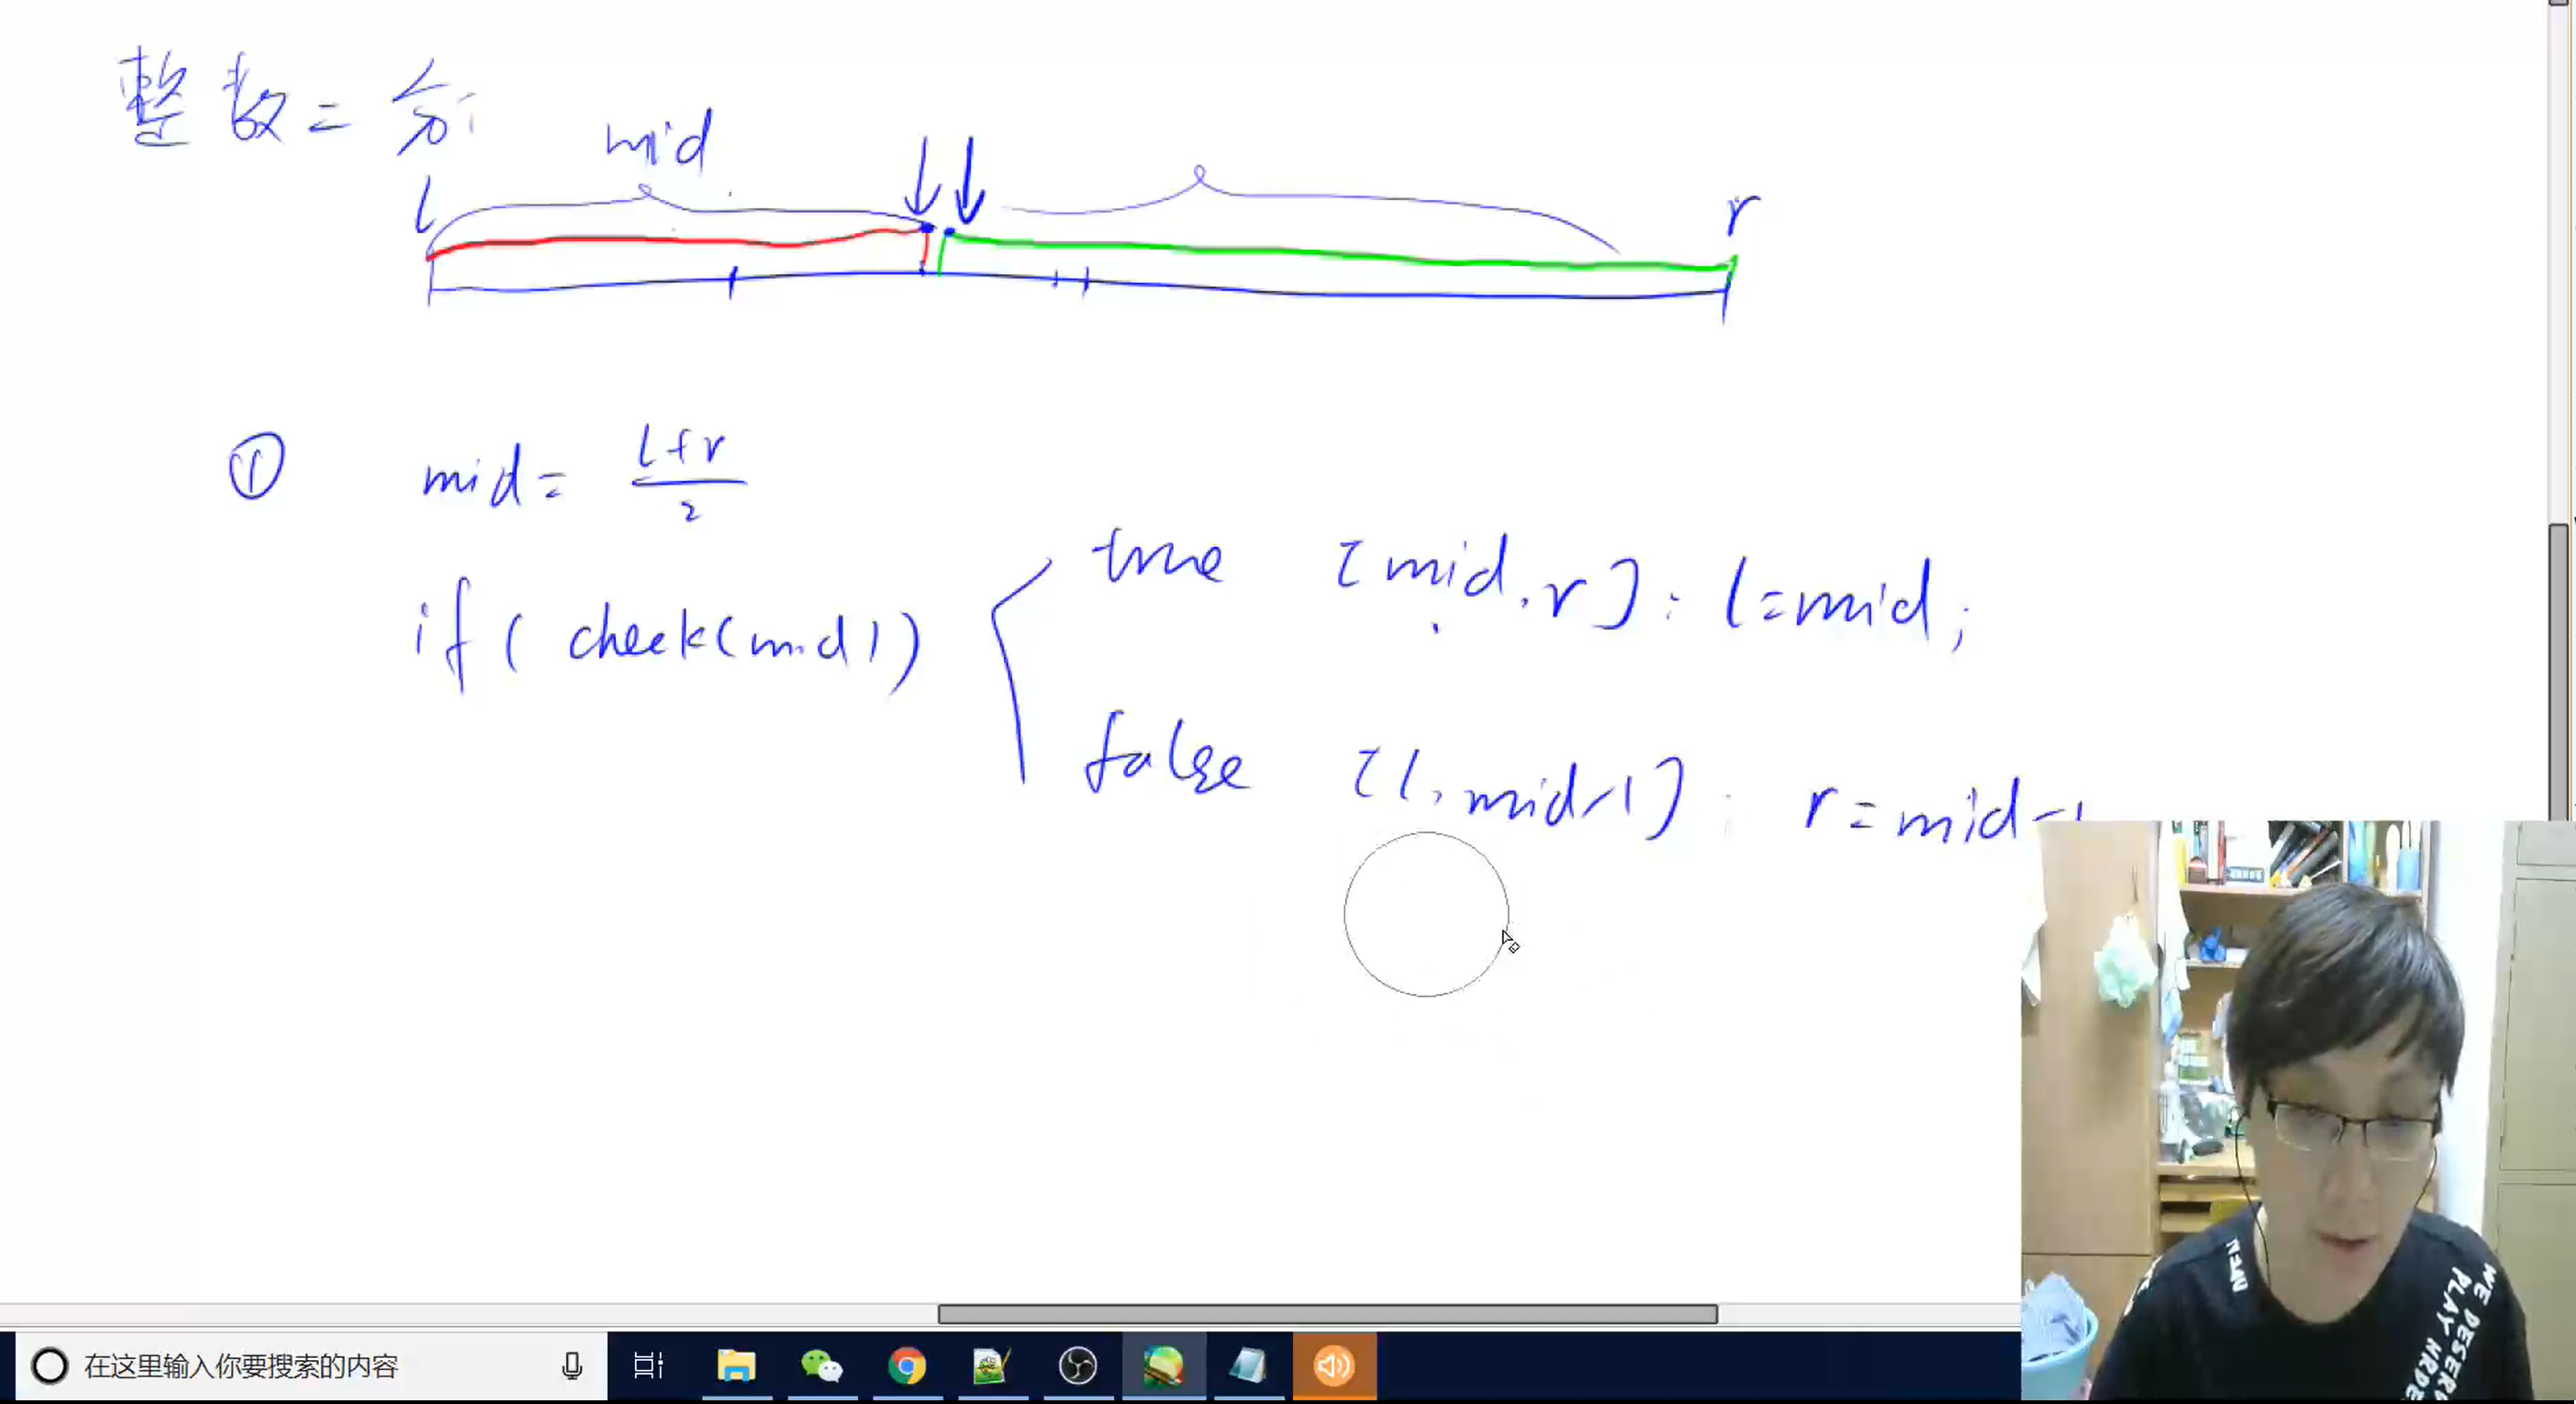 整数二分
mid
l
r
① mid = l+r
2
if ( check(mid) )
true [mid, r] : l=mid;
false [l, mid-1] : r=mid-1
在这里输入你要搜索的内容
OPEN
WE DESERV
PLAY